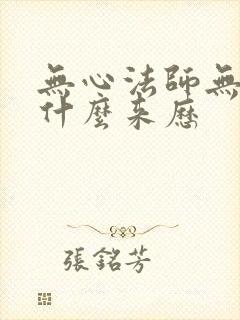 無心法師無
什麼來歷
張銘芳